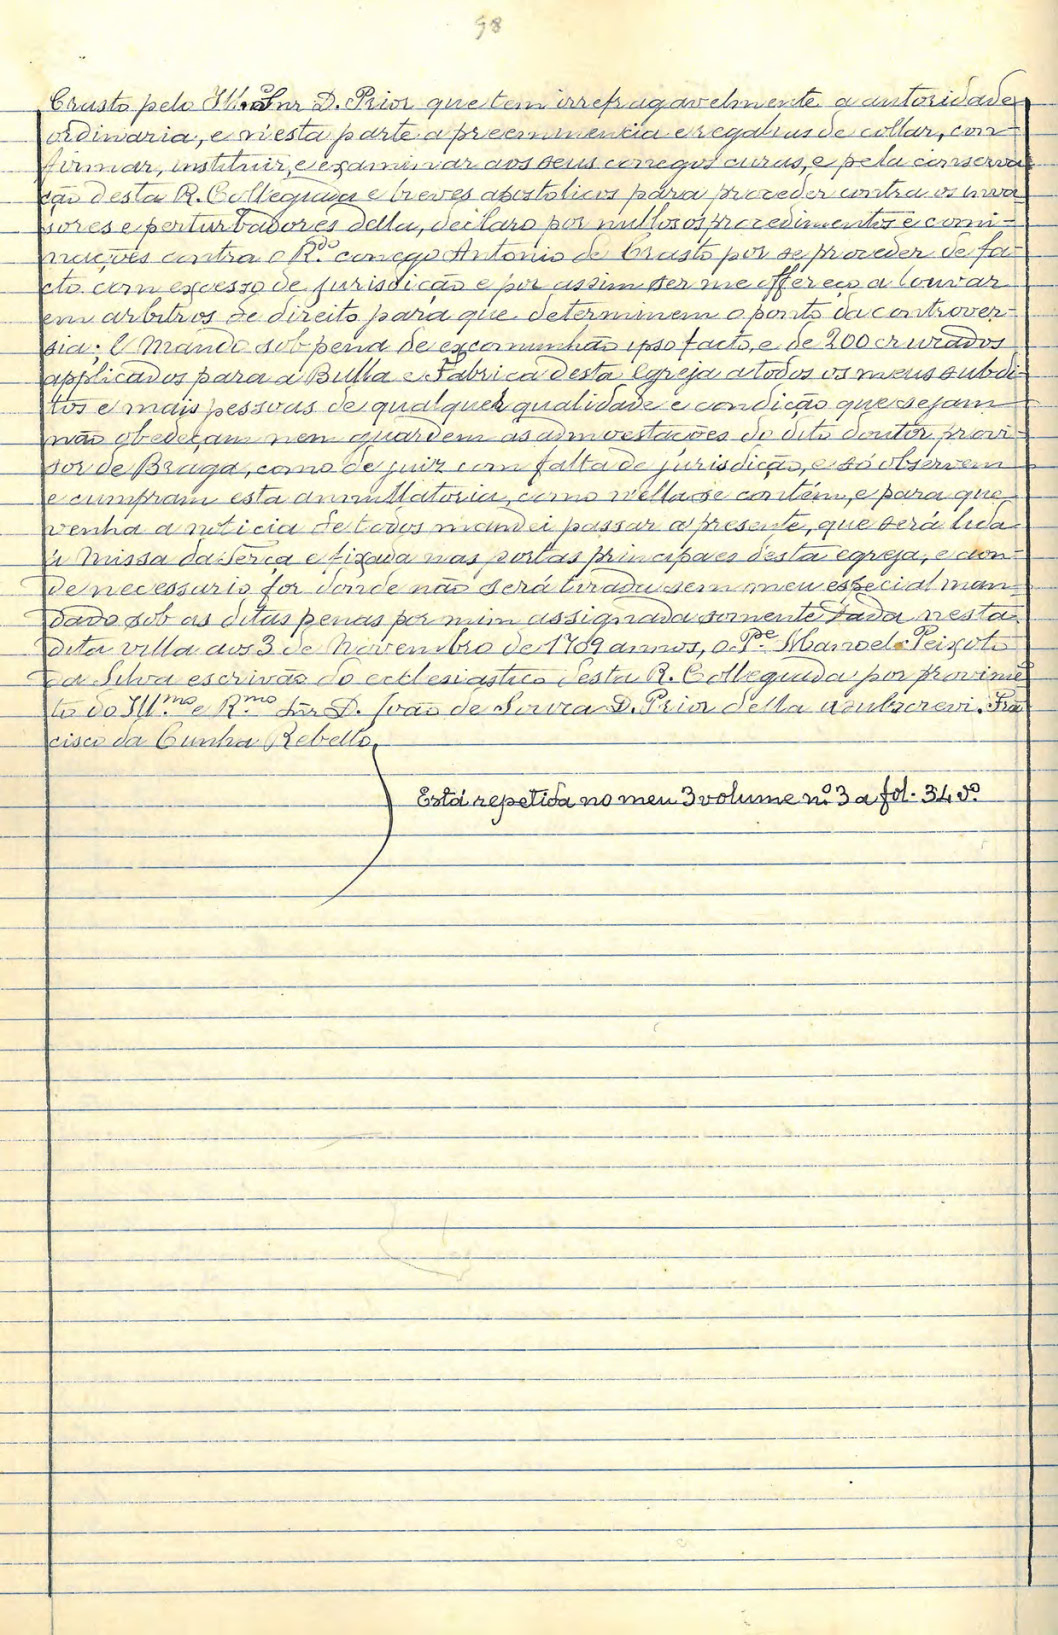 98
Crasto pelo Ill.º Snr D. Prior que tem irrefragavelmente a autoridade
ordinaria, e n'esta parte a preeminencia e regalias de collar, con-
firmar, instituir, e examinar aos seus conegos curas, e pela conserva-
ção desta R. Collegiada e breves apostolicos para proceder contra os inva-
sores e perturbadores della, declaro por nullos os procedimentos e comi-
nações contra o R.do conego Antonio de Crasto por se proceder de fa-
cto com excesso de jurisdicção e por assim ser me offereço a louvar
em arbitros de direito para que determinem o ponto da controver-
sia; E Mando sob pena de excomunhão ipso facto, e de 200 cruzados
applicados para a Bulla e Fabrica desta Egreja a todos os meus subdi-
tos e mais pessoas de qualquer qualidade e condição que sejam
não obedeçam nem guardem as admoestações do dito doutor provi-
sor de Braga, como de juiz com falta de jurisdicção, e só observem
e cumpram esta annullatoria, como n'ella se contém, e para que
venha a noticia de todos mandei passar a presente, que será lida
á Missa da Terça e fixada nas portas principaes desta egreja, e aon-
de necessario for donde não será tirada sem meu especial man-
dado sob as ditas penas por mim assignada somente Dada nesta
dita villa aos 3 de Novembro de 1709 annos, o P.e Manoel Peixoto
da Silva escrivão do ecclesiastico desta R. Collegiada por provimē
to do Ill.mo e R.mo Sñr D. João de Souza D. Prior della a subscrevi. Frā
cisco da Cunha Rebello.
Está repetida no meu 3 volume n.º 3 a fol. 34 v.º